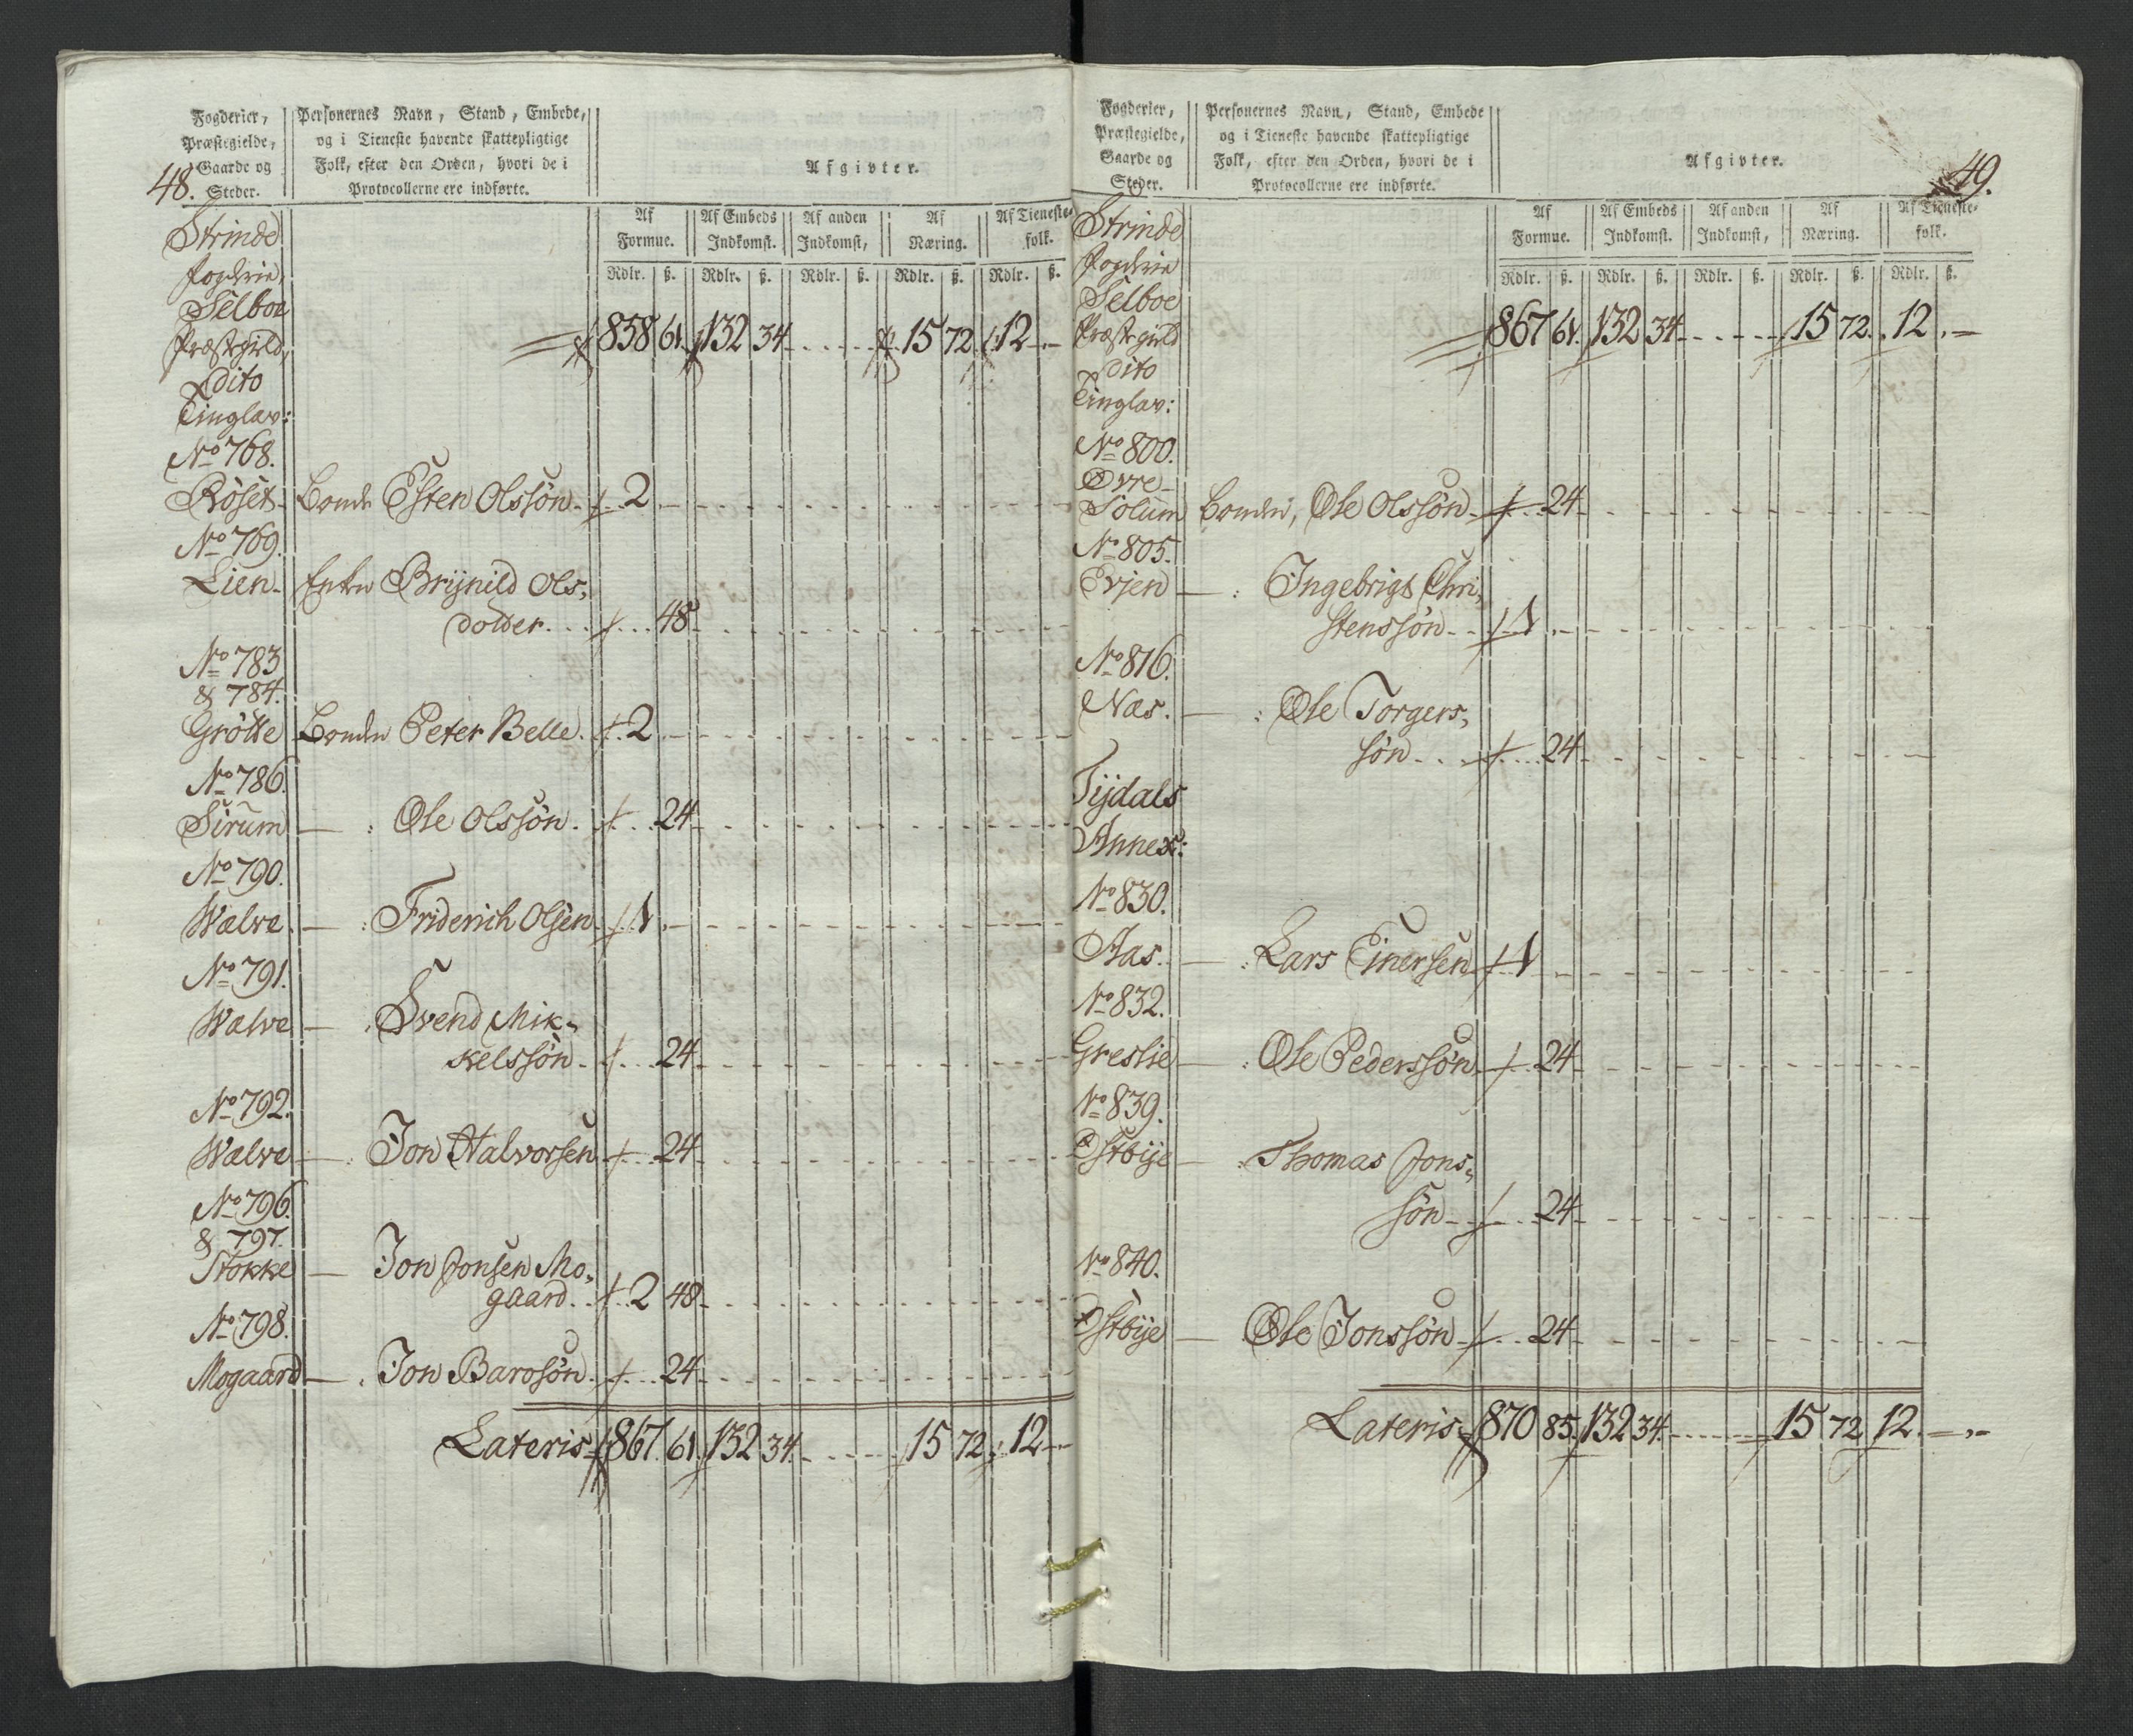 48.
Fogderier, Personernes Navn, Stand, Embede,
Præstegielde, og i Tieneste havende skattepligtige
Gaarde og Folk, efter den Orden, hvori de i Afgivter.
Steder. Protocollerne ere indførte.
Af Af Embeds Af anden Af Af Tieneste-
Formue. Indkomst. Indkomst, Næring. folk.
Rdlr. ß. Rdlr. ß. Rdlr. ß. Rdlr. ß. Rdlr. ß.
Strinde
Fogderie,
Selboe
Præstegield, 858 61. 132 34 15 72. 12
dito
Tinglav:
No 768.
Röset Bonde Esten Olssön 2
No 769.
Lien Enken Brÿnild Ols,
dotter 48
No 783
& 784.
Grötte Bonden Peter Belle 2
No 786.
Sirum — : Ole Olssön 24
No 790.
Wælve — : Friderich Olsen 1
No 791.
Wælve — Svend Mik,
kelssön 24
No 792.
Wælve — : Jon Halvorsen 24
No 796.
& 797.
Stokke — Jon Jonsen Mo,
gaard 2 48
No 798.
Mogaard — Jon Barosön 24
Lateris 867. 61. 132 34. 15 72. 12
49.
Fogderier, Personernes Navn, Stand, Embede
Præstegielde, og i Tieneste havende skattepligtige
Gaarde og Folk, efter den Orden, hvori de i Afgivter.
Steder. Protocollerne ere indførte.
Af Af Embeds Af anden Af Af Tieneste-
Formue. Indkomst. Indkomst, Næring. folk.
Rdlr. ß. Rdlr. ß. Rdlr. ß. Rdlr. ß. Rdlr. ß.
Strinde
Fogderie
Selboe
Præstegield 867 61. 132 34 15 72. 12
dito
Tinglav:
No 800.
Øvre
Solum Bonden, Ole Olssön 24
No 805.
Evjen — : Ingebrigt Chri,
stenssön 1
No 816.
Næs. — : Ole Torgers,
søn 24
Tÿdals
Annex:
No 830.
Aas. — : Lars Einersen 1
No 832.
Greslie — : Ole Pederssön 24
No 839.
Østbÿe — : Thomas Jons,
sön 24
No 840.
Østbÿe — Ole Jonssön 24
Lateris 870 85. 132 34. 15 72 12.